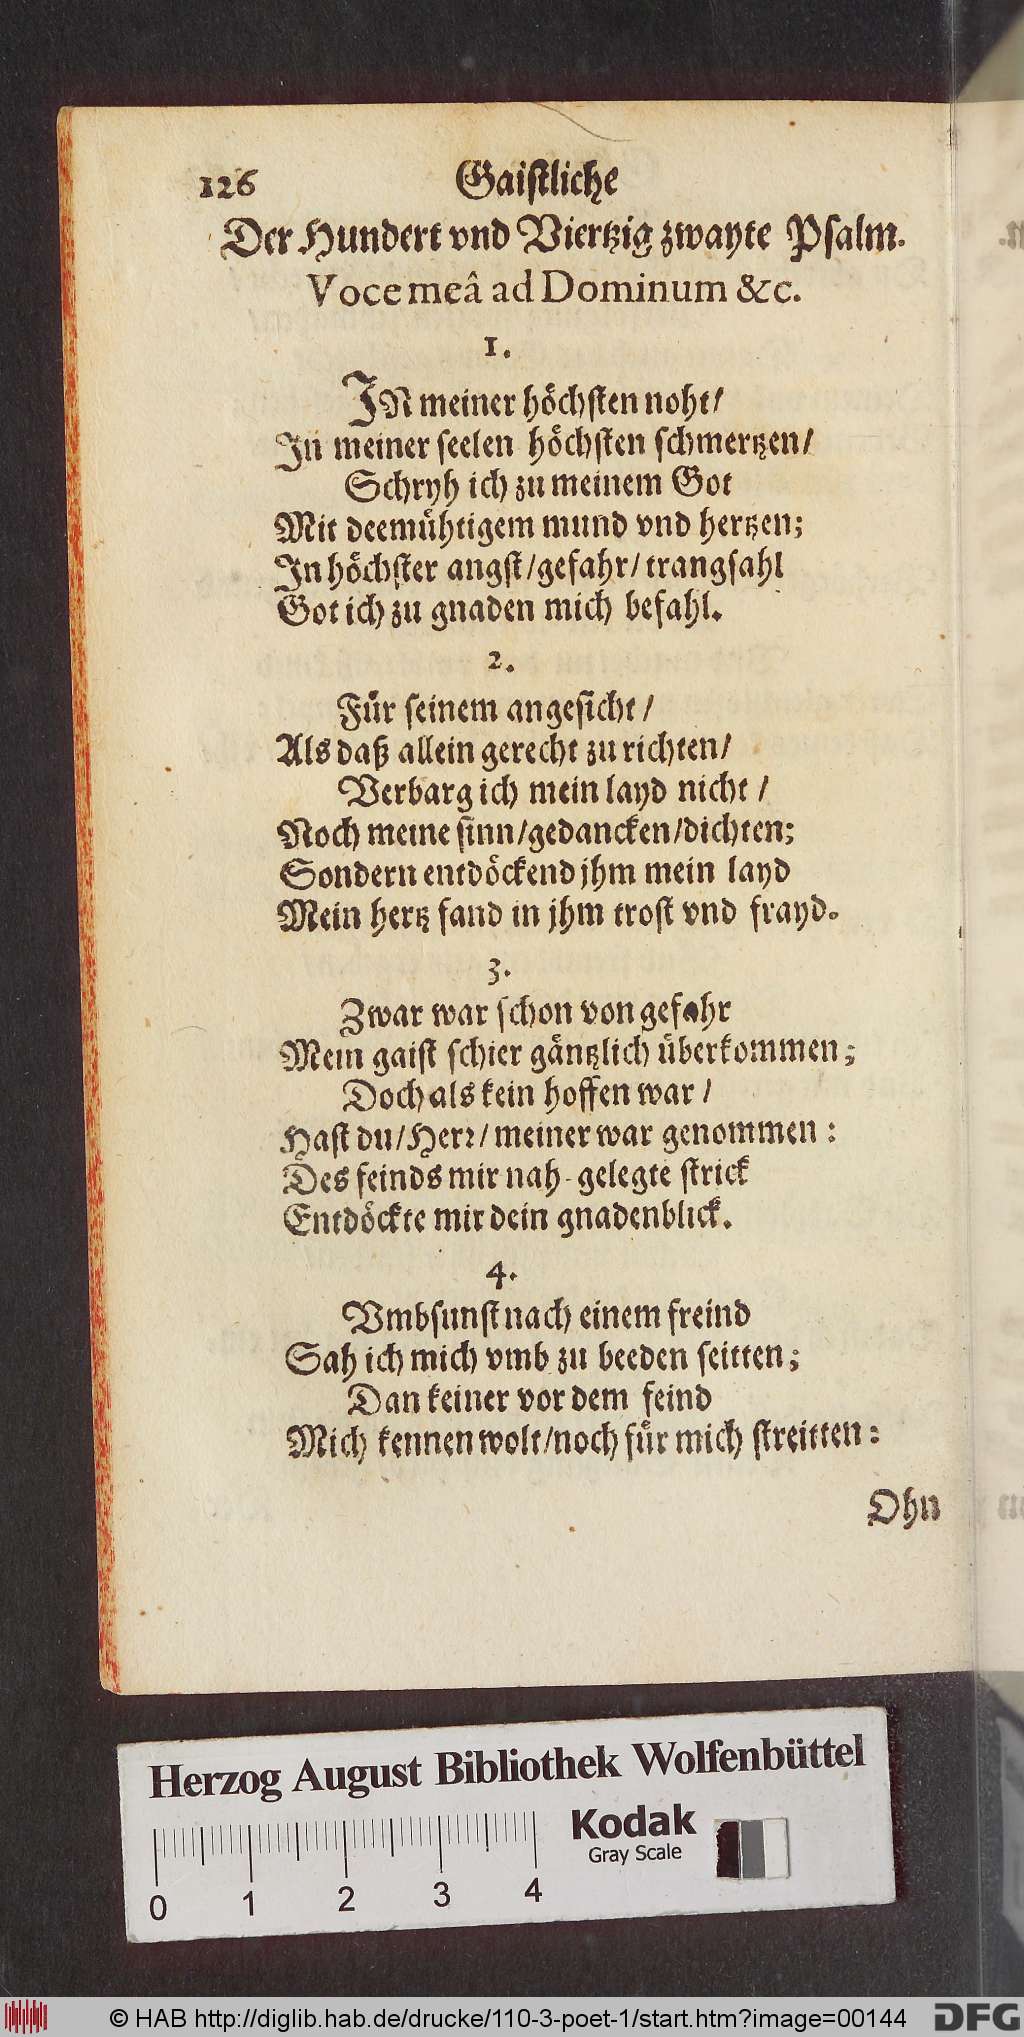 126 Gaistliche
Der Hundert vnd Viertzig zwayte Psalm.
Voce meâ ad Dominum &c.
1.
IN meiner höchsten noht/
In meiner seelen höchsten schmertzen/
Schryh ich zu meinem Got
Mit deemühtigem mund vnd hertzen;
In höchster angst/gefahr/trangsahl
Got ich zu gnaden mich befahl.
2.
Für seinem angesicht/
Als daß allein gerecht zu richten/
Verbarg ich mein layd nicht/
Noch meine sinn/gedancken/dichten;
Sondern entdöckend jhm mein layd
Mein hertz fand in jhm trost vnd frayd.
3.
Zwar war schon von gefahr
Mein gaist schier gäntzlich überkommen;
Doch als kein hoffen war/
Hast du/Herr/meiner war genommen:
Des feinds mir nah-gelegte strick
Entdöckte mir dein gnadenblick.
4.
Vmbsunst nach einem freind
Sah ich mich vmb zu beeden seitten;
Dan keiner vor dem feind
Mich kennen wolt/noch für mich streitten:
Ohn
Herzog August Bibliothek Wolfenbüttel
Kodak
Gray Scale
0 1 2 3 4
© HAB http://diglib.hab.de/drucke/110-3-poet-1/start.htm?image=00144
DFG